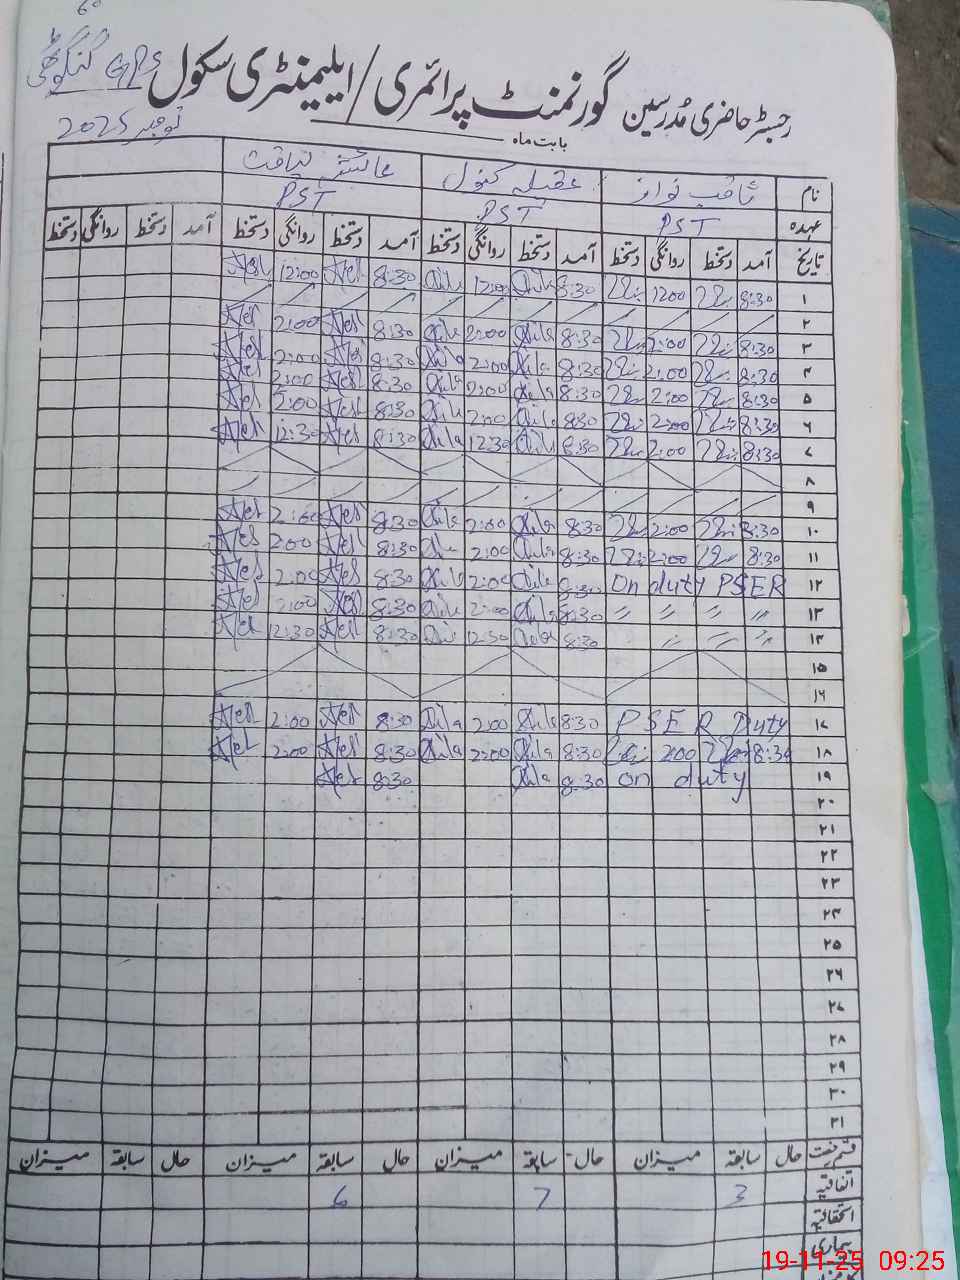 GPS گنگوٹھی
رجسٹر حاضری مُدرسین گورنمنٹ پرائمری/ایلیمنٹری سکول
بابت ماہ نومبر 2025
نام ثاقب نواز عقیلہ کنول عائشہ لیاقت
عہدہ PST PST PST
تاریخ آمد دستخط روانگی دستخط آمد دستخط روانگی دستخط آمد دستخط روانگی دستخط آمد دستخط روانگی دستخط
۱ 8:30 1200 8:30 12:00 8:30 12:00
۲
۳ 8:30 2:00 8:30 2:00 8:30 2:00
۴ 8:30 2:00 8:30 2:00 8:30 2:00
۵ 8:30 2:00 8:30 2:00 8:30 2:00
۶ 8:30 2:00 8:30 2:00 8:30 2:00
۷ 8:30 2:00 8:30 12:30 8:30 12:30
۸
۹
۱۰ 8:30 2:00 8:30 2:00 8:30 2:00
۱۱ 8:30 2:00 8:30 2:00 8:30 200
۱۲ On duty PSER 8:30 2:00 8:30 2:00
۱۳ 〃 〃 〃 〃 8:30 2:00 8:30 2:00
۱۴ 〃 〃 〃 8:30 12:30 8:30 12:30
۱۵
۱۶
۱۷ PSER Duty 8:30 2:00 8:30 2:00
۱۸ 8:30 200 8:30 2:00 8:30 2:00
۱۹ on duty 8:30 8:30
۲۰
۲۱
۲۲
۲۳
۲۴
۲۵
۲۶
۲۷
۲۸
۲۹
۳۰
۳۱
قسم رخصت حال سابقہ میزان حال سابقہ میزان حال سابقہ میزان حال سابقہ میزان
اتفاقیہ 3 7 6
استحقاقیہ
بیماری
19-11-25 09:25